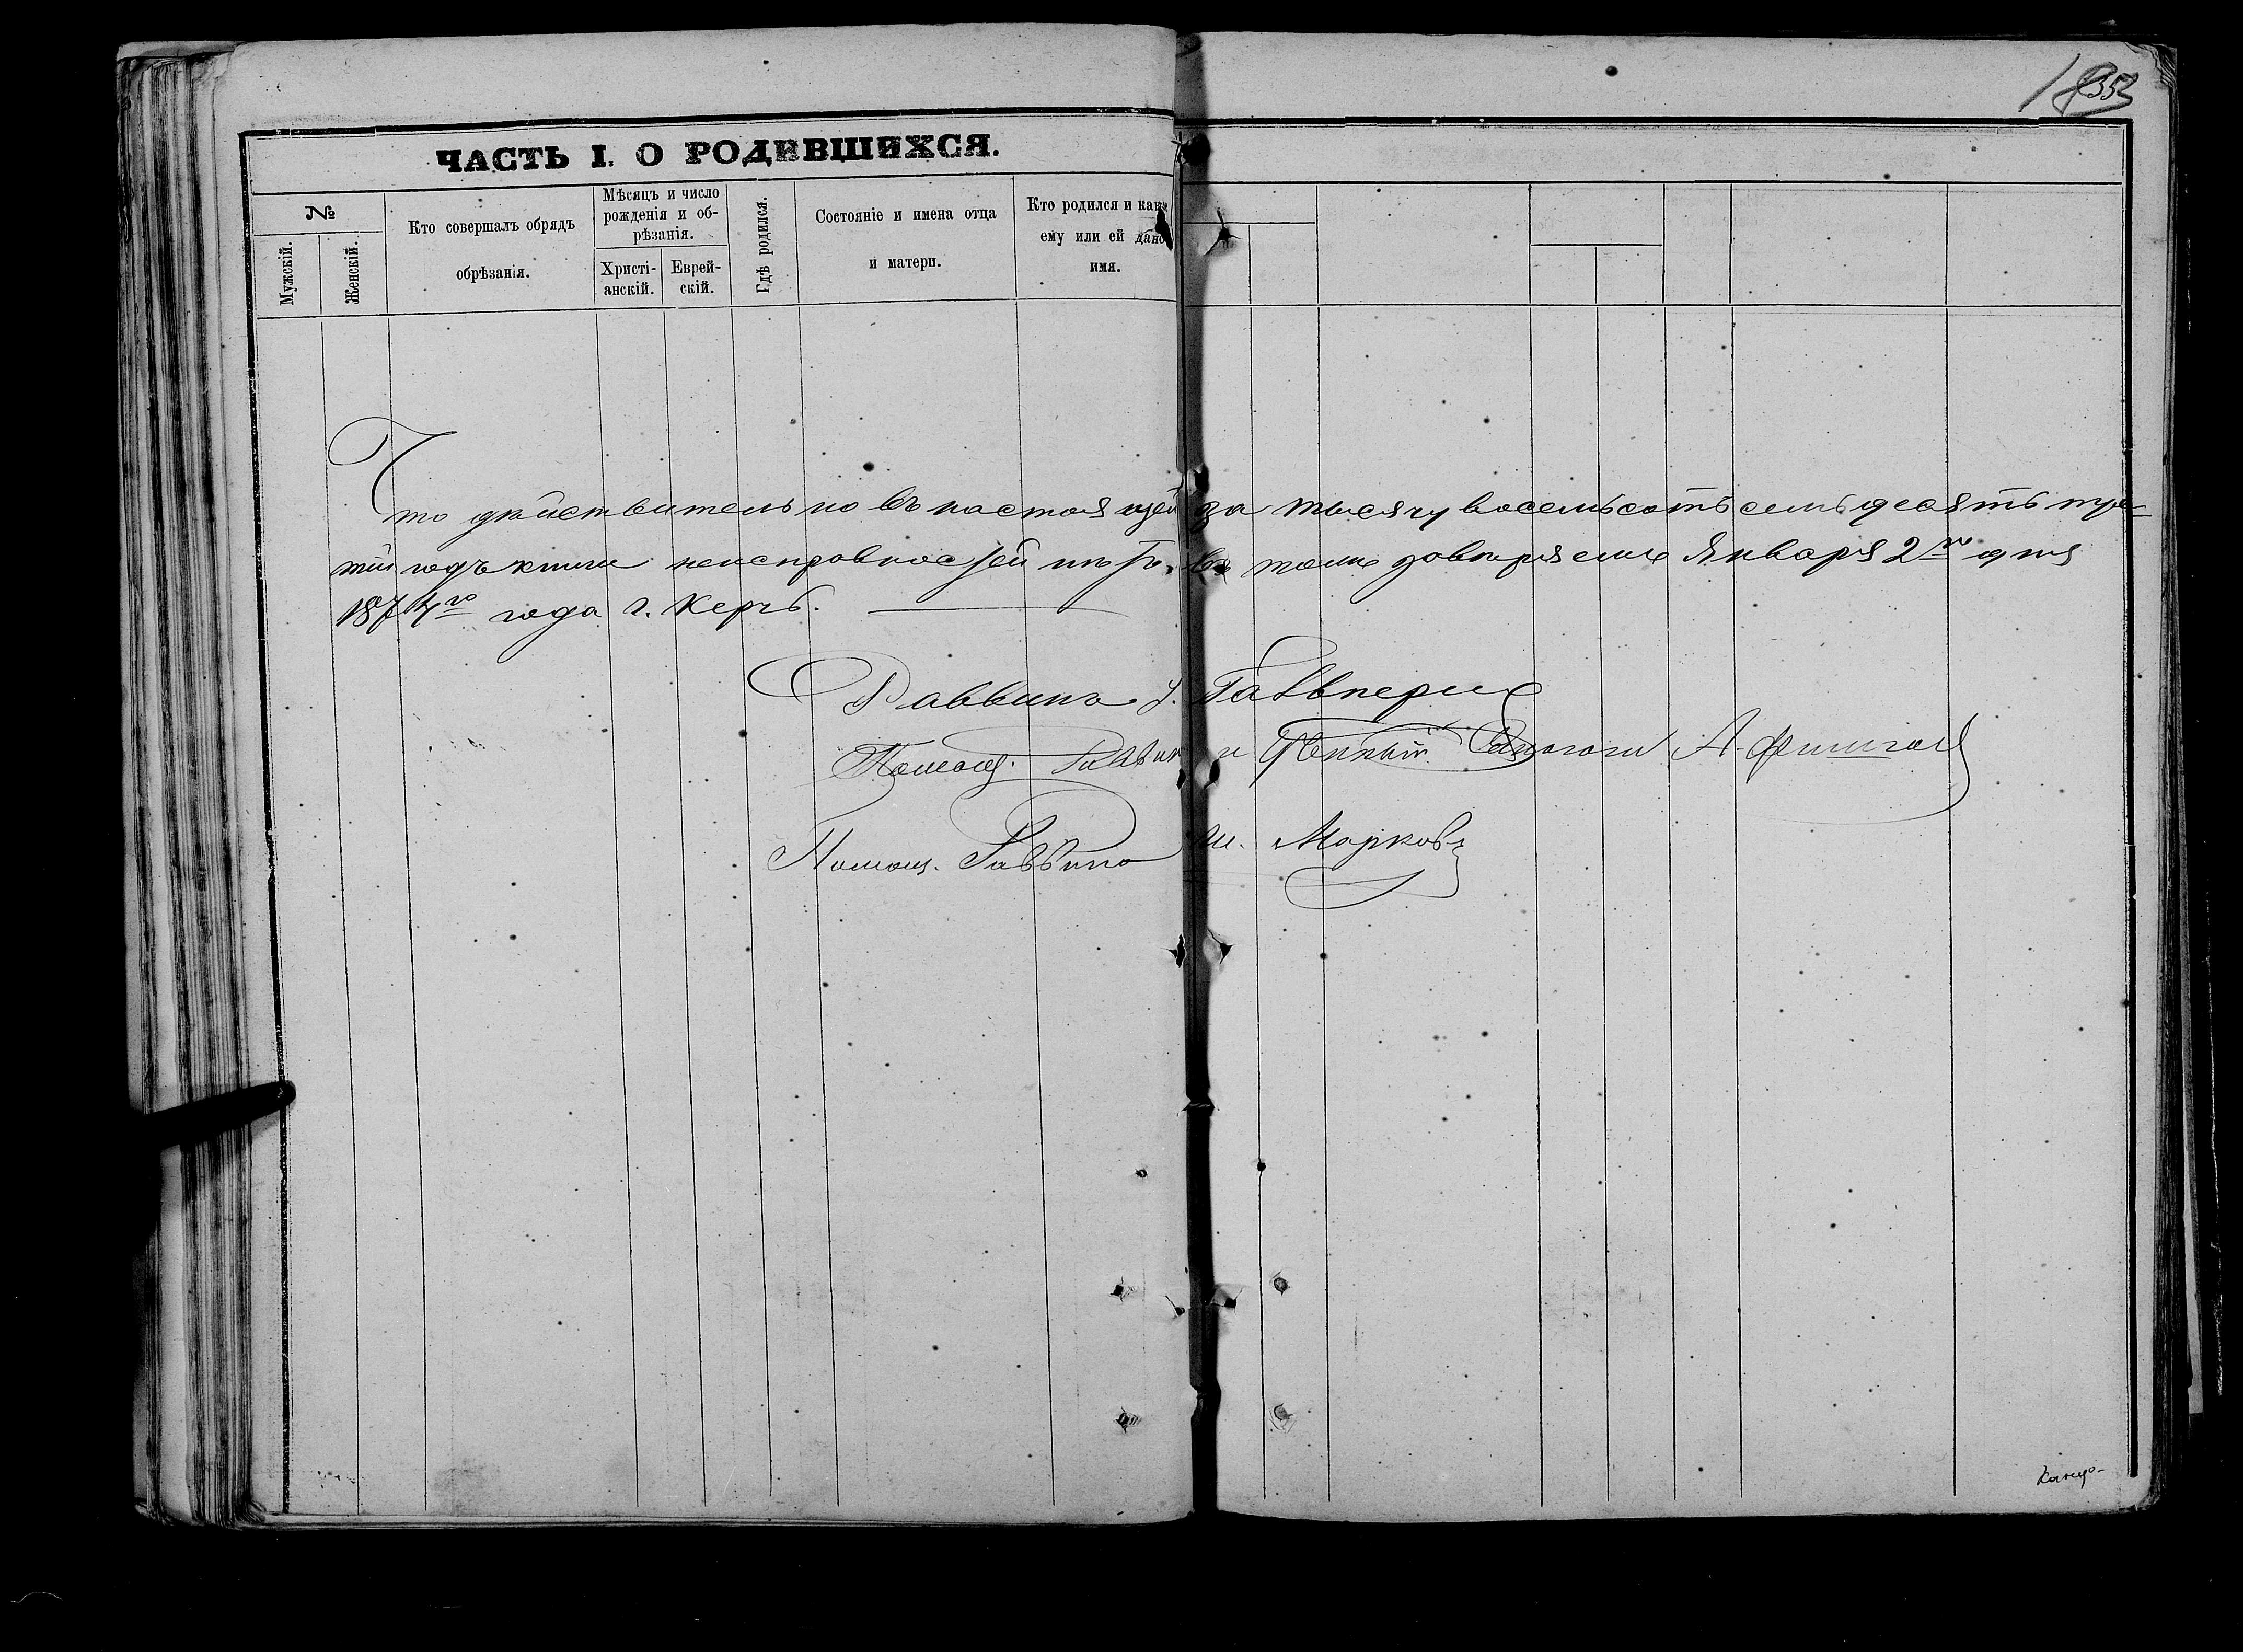 ЧАСТЬ I. О РОДИВШИХСЯ.
№
Мужскій.
Женскій.
Кто совершалъ обрядъ
обрѣзанія.
Мѣсяцъ и число
рожденія и об-
рѣзанія.
Христі-
анскій.
Еврей-
скій.
Гдѣ родился.
Состояніе и имена отца
и матери.
Кто родился и как
ему или ей дано
имя.
Что дѣйствительно въ настоящей за тысячу восемьсотъ семьдесятъ тре-
тій годъ книги неисправностей нѣтъ, въ томъ завѣряемъ Января 2го дня
1874го года г. Керчь.
Раввинъ
Помощ. Раввина и Ученый Синагоги А. Фишголь
Помощ. Раввина Ш. Марковъ